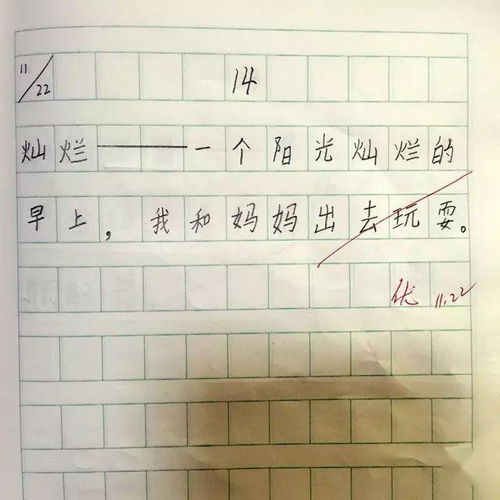 11/22 14
灿烂——一个阳光灿烂的
早上，我和妈妈出去玩耍。
优 11.22